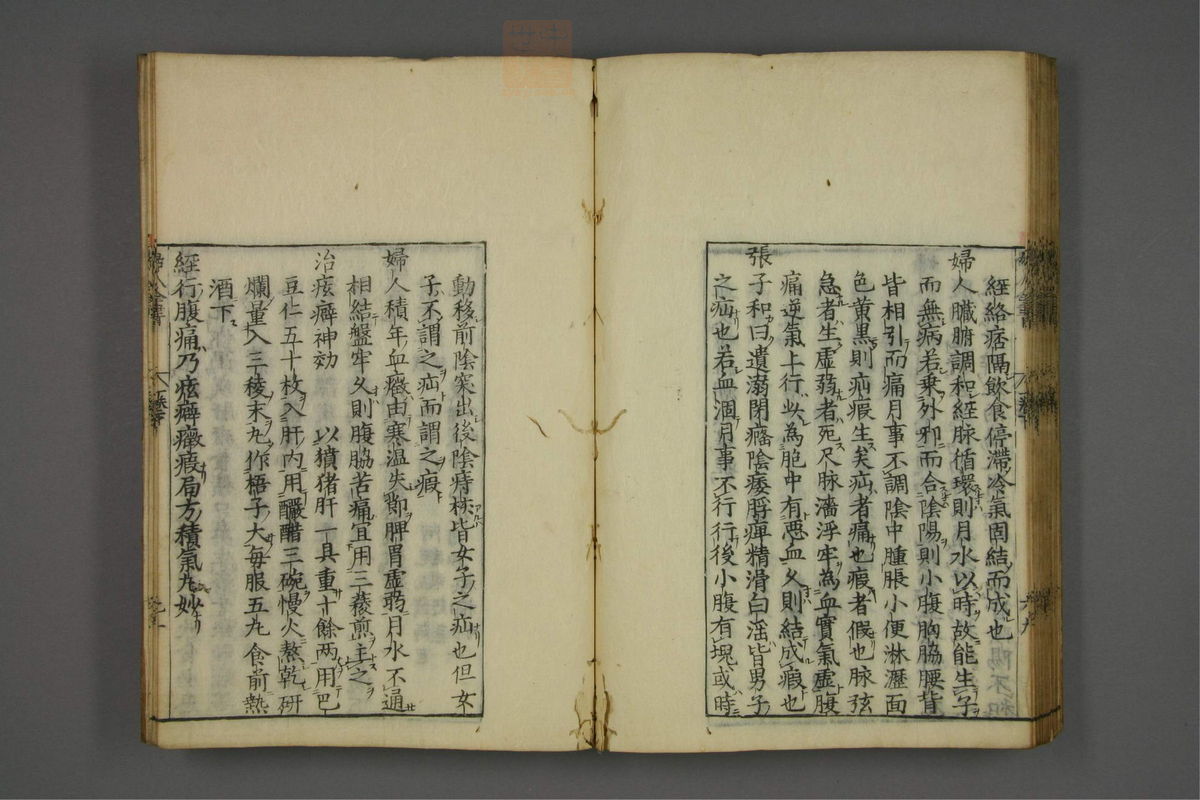 經絡痞隔飲食停滯冷氣固結而成也
婦人臟腑調和經脉循環則月水以時故能生子
而無病若乗外邪而合陰陽則小腹胸脇腰背
皆相引而痛月事不調陰中腫脹小便淋瀝面
色黄黒則疝瘕生矣疝者痛也瘕者假也脉弦
急者生虚弱者死尺脉濇浮牢為血實氣虚腹
痛逆氣上行此為胞中有惡血久則結成瘕也
張子和曰遺溺閉癃陰痿脬痺精滑白淫皆男子
之疝也若血涸月事不行行後小腹有塊或時
動移前陰突出後陰痔核皆女子之疝也但女
子不謂之疝而謂之瘕
婦人積年血癥由寒温失節脾胃虚弱月水不通
相結盤牢久則腹脇苦痛宜用三稜煎主之
治痃癖神効 以獖猪肝一具重十餘两用巴
豆仁五十枚入肝内用釅醋三碗慢火熬乾研
爛量入三稜末丸作梧子大毎服五丸食前熱
酒下
經行腹痛乃痃癖癥瘕局方積氣丸妙